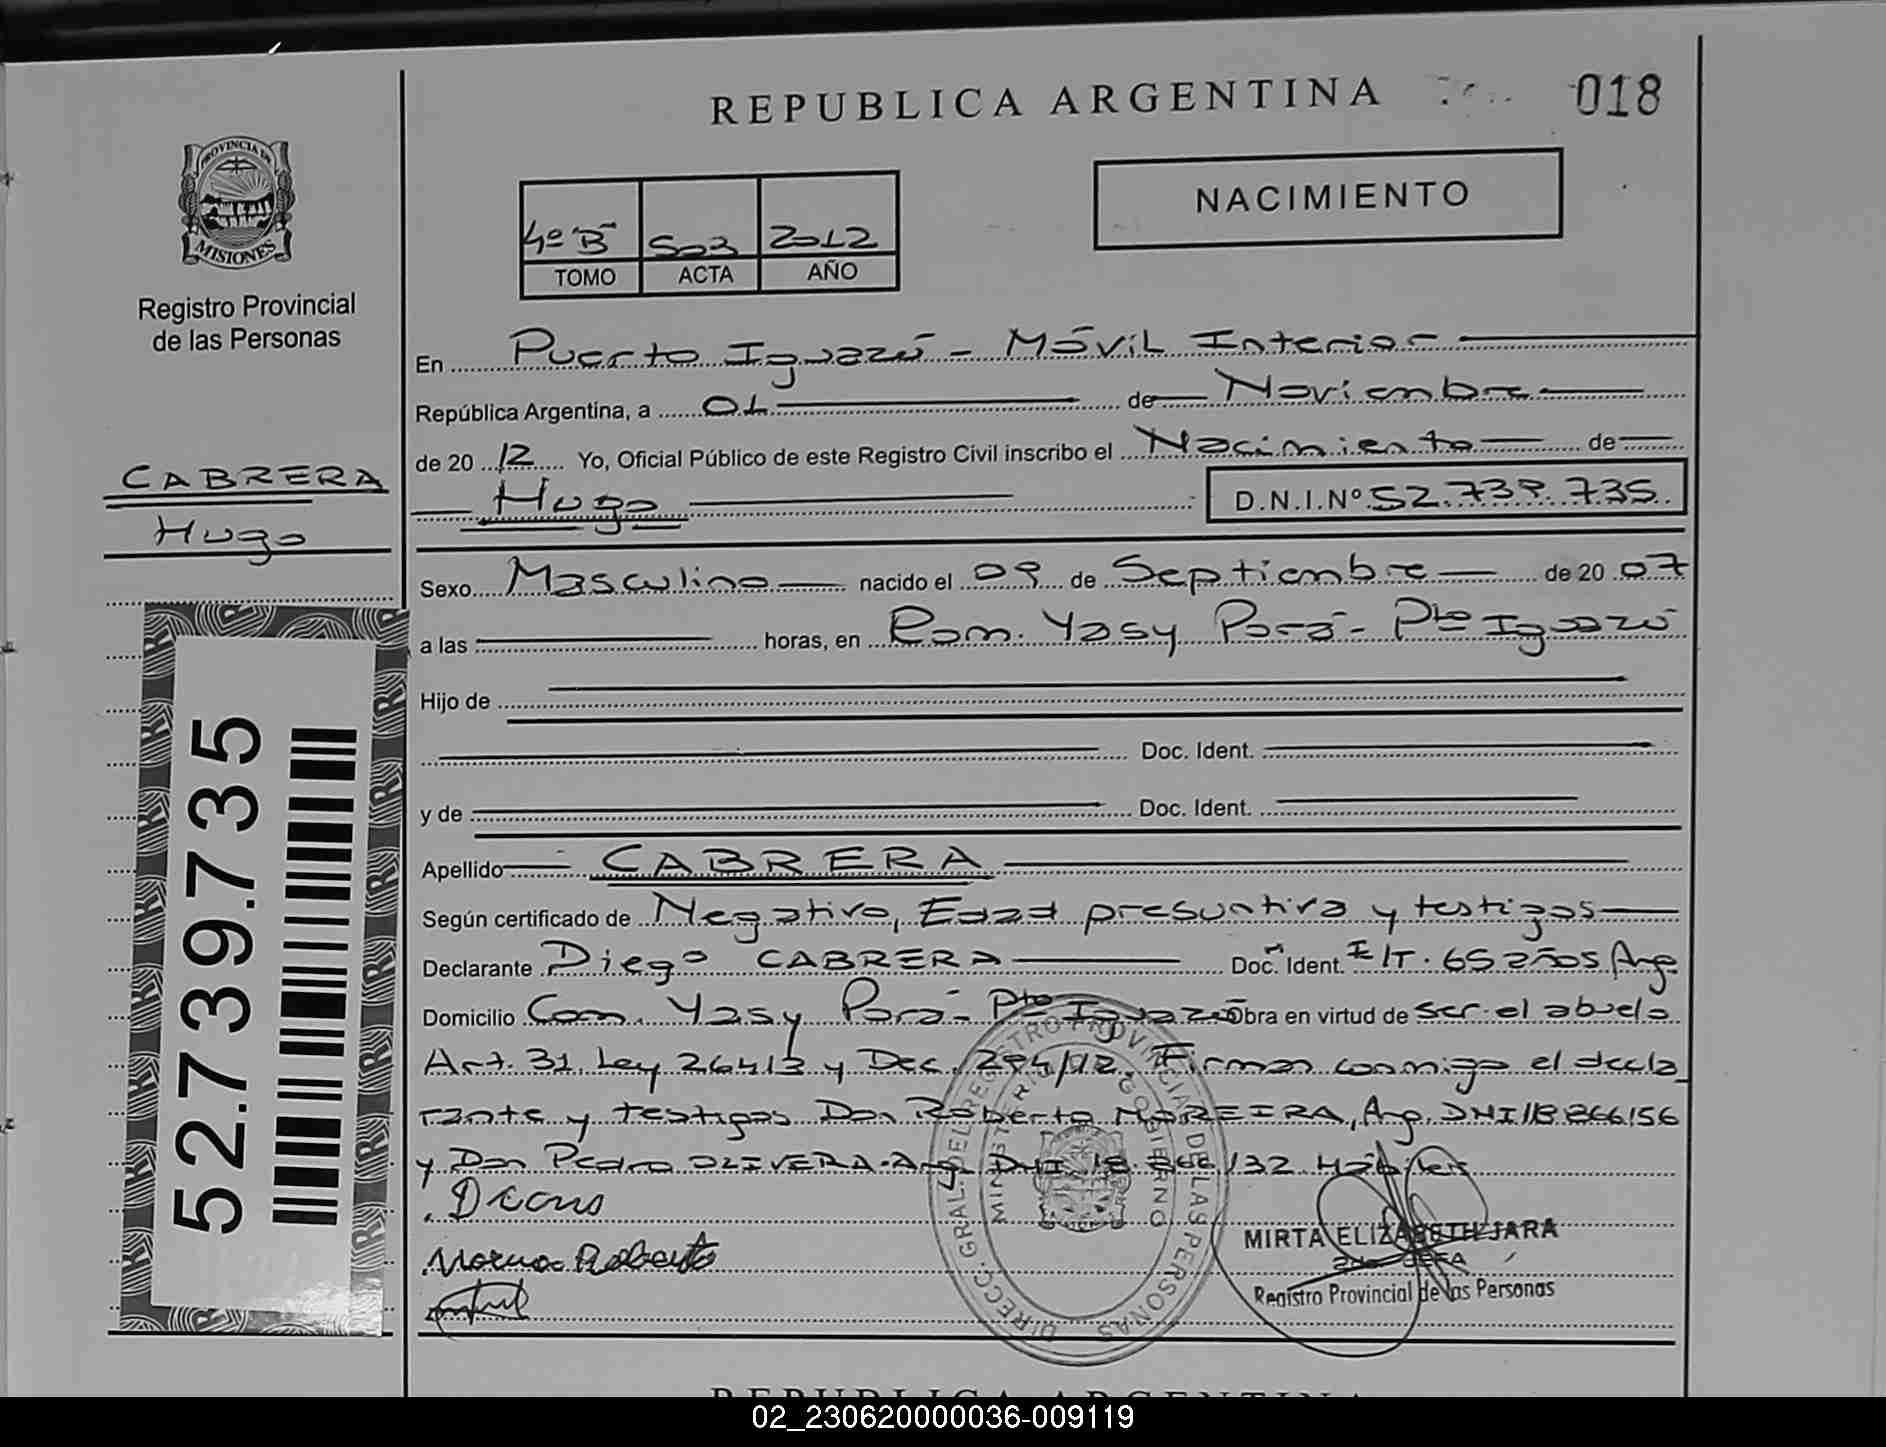 REPUBLICA ARGENTINA
018
PROVINCIA DE
MISIONES
Registro Provincial
de las Personas
NACIMIENTO
4º "B" 503 2012
TOMO ACTA AÑO
En Puerto Iguazú - Móvil Interior
República Argentina, a 01 de Noviembre
de 20 12 Yo, Oficial Público de este Registro Civil inscribo el Nacimiento de
Hugo D.N.I.Nº 52.739.735
CABRERA
Hugo
Sexo Masculino nacido el 09 de Septiembre de 20 07
a las horas, en Com. Yasy Porá - Pto Iguazú
Hijo de
Doc. Ident.
y de Doc. Ident.
Apellido CABRERA
Según certificado de Negativo, Edad presuntiva y testigos
Declarante Diego CABRERA Doc. Ident. I/T. 65 años Arg
Domicilio Com. Yasy Porá - Pto Iguazú Obra en virtud de ser el abuelo
Art. 31 Ley 26413 y Dec. 294/12. Firman conmigo el decla
rante y testigos Don Roberto MOREIRA, Arg. DNI 18 866156
y Don Pedro OLIVERA. Arg. DNI 18. 866132 Hábiles
Roberto
52.739.735
DIRECC. GRAL. DEL REGISTRO PROVINCIAL DE LAS PERSONAS
MINISTERIO GOBIERNO
MIRTA ELIZABETH JARA
2do JEFA
Registro Provincial de las Personas
REPUBLICA ARGENTINA
02_230620000036-009119